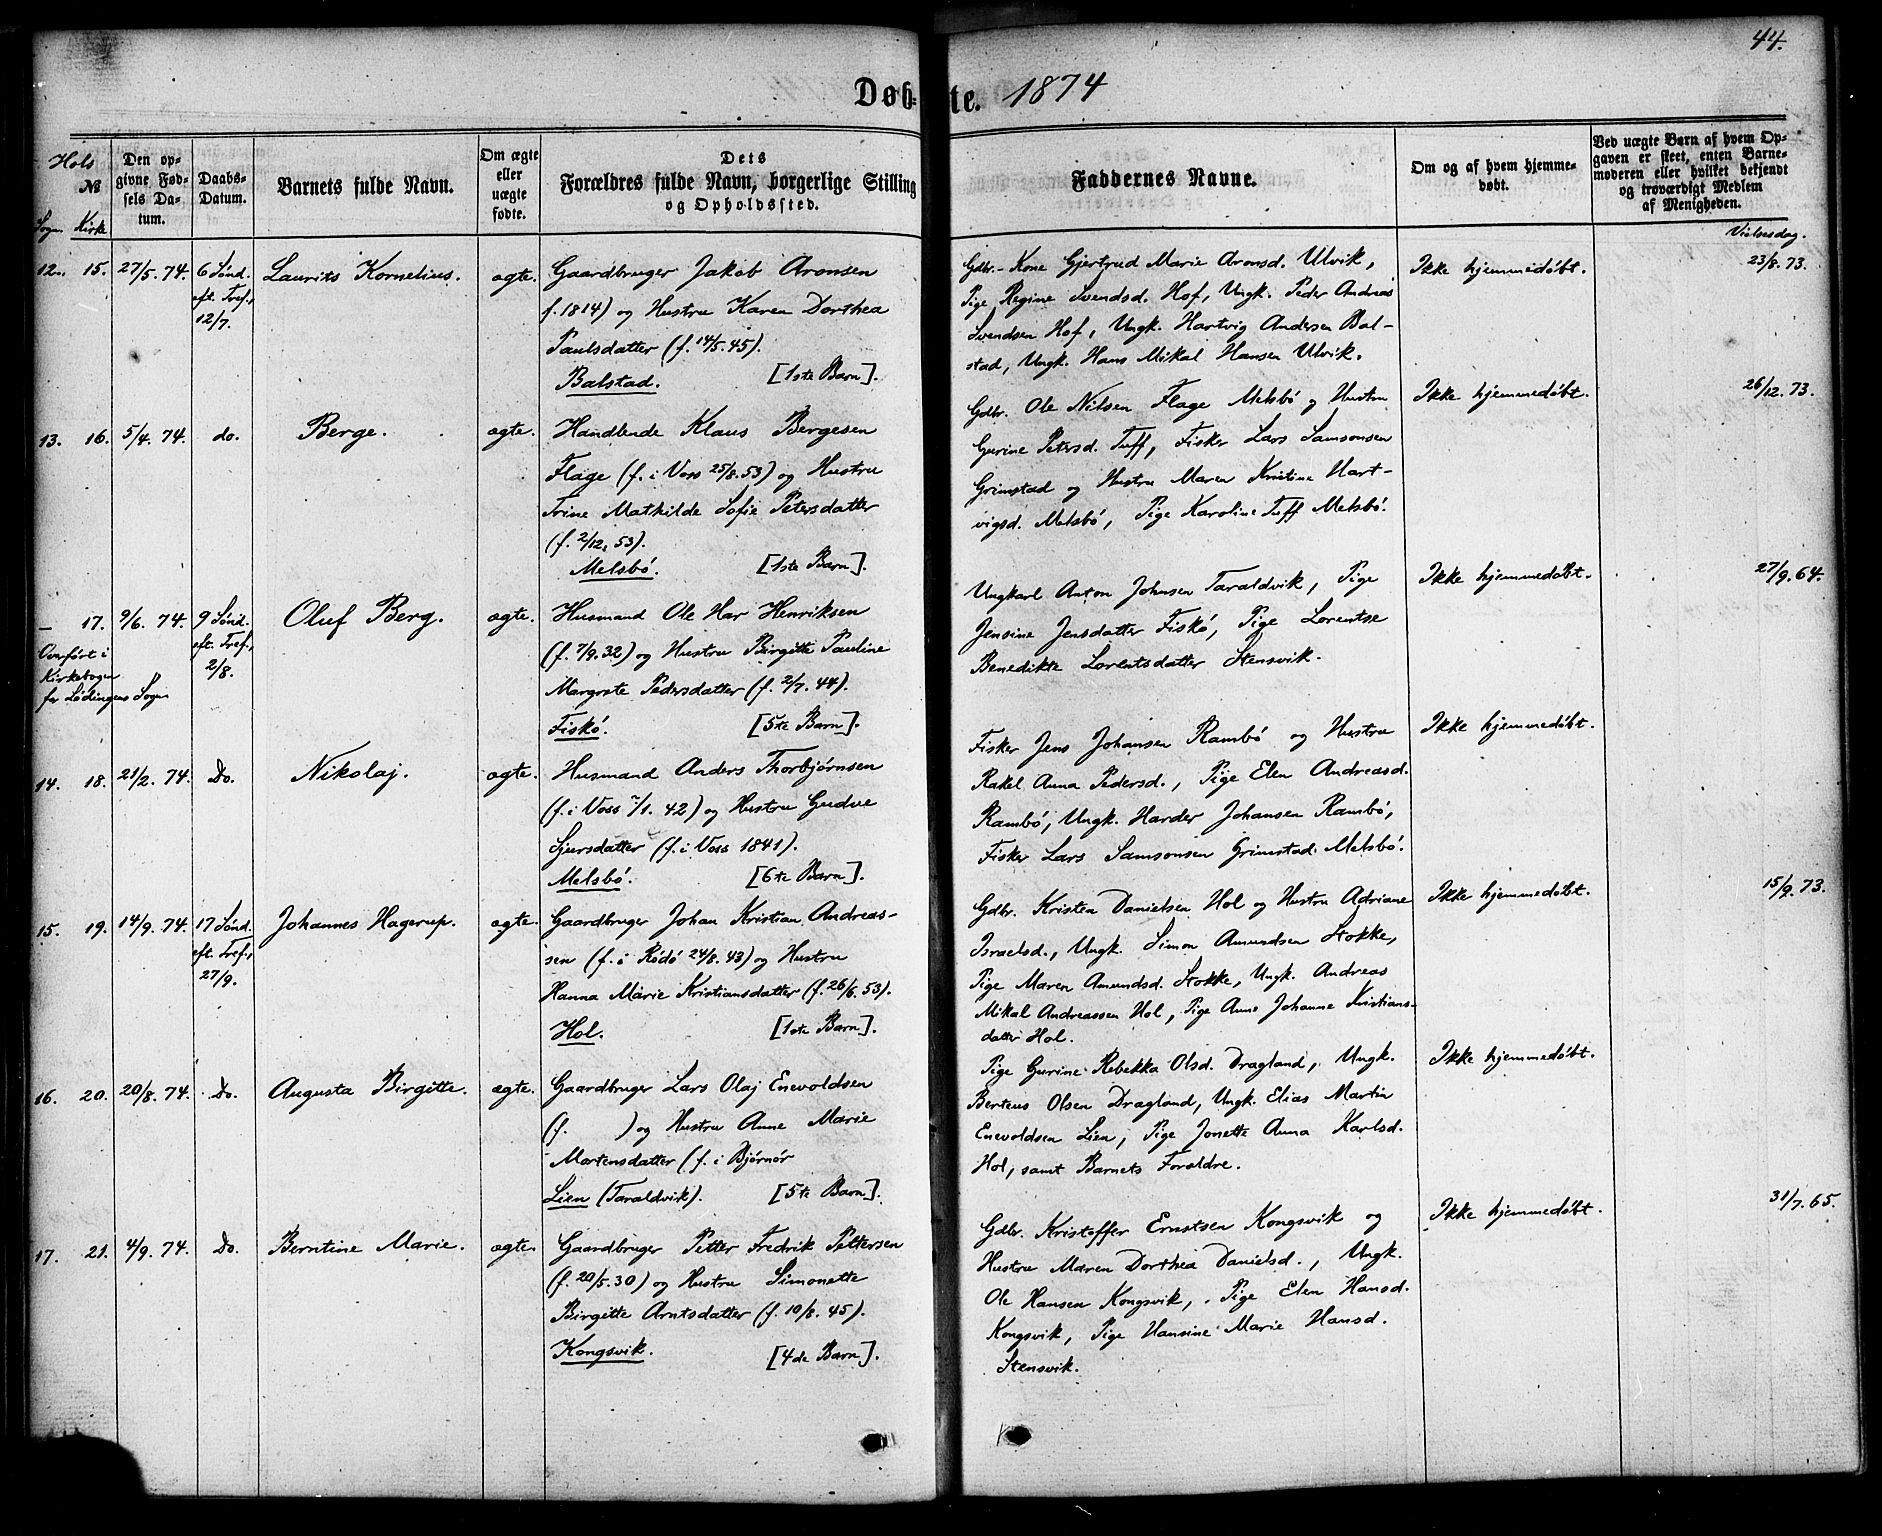 44.
Døb-te. 1874
Hols
№
Sogn Kirke
Den op-
givne Fød-
sels Da-
tum.
Daabs-
Datum.
Barnets fulde Navn.
Om ægte
eller
uægte
fødte.
Dets
Forældres fulde Navn, borgerlige Stilling
og Opholdssted.
Faddernes Navne.
Om og af hvem hjemme-
døbt.
Ved uægte Børn af hvem Op-
gaven er skeet, enten Barne-
moderen eller hvilket bekjendt
og troværdigt Medlem
af Menigheden.
Vielsesdag.
12. 15. 27/5. 74. 6 Sønd. Laurits Kornelius. ægte. Gaardbruger Jakob Aronsen
eft. Tref., f. 1814) og Hustru Karen Dorthea
12/7. Paulsdatter (f. 14/5. 45).
Balstad. [1ste Barn].
Gdbr.- Kone Gjertrud Marie Aronsd. Ulvik,
Pige Regine Svendsd. Hof, Ungk. Peder Andreas
Svendsen Hof, Ungk. Hartvig Andersen Bal-
stad, Ungk. Hans Mikal Hansen Ulvik.
Ikke hjemmedøbt. 23/8. 73.
13. 16. 5/4. 74. do. Berge. ægte. Handlende Klaus Bergesen
Flage (f. i Voss 25/8. 53) og Hustru
Trine Mathilde Sofie Petersdatter
(f. 2/12. 53).
Melsbö. [1ste Barn].
Gdbr. Ole Nilsen Flage Melsbö og Hustru
Gurine Petersd. Tuff, Fisker Lars Samsonsen
Grimstad og Hustru Maren Kristine Hart-
vigsd. Melsbö, Pige Karoline Tuff Melsbö.
Ikke hjemmedøbt. 26/12. 73.
— 17. 9/6. 74. 9 Sønd. Oluf Berg. ægte. Husmand Ole Har Henriksen
Overført i eft. Tref., (f. 7/9. 32) og Hustru Birgitte Pauline
Kirkebogen 2/8.
for Lødingens Sogn Margrete Pedersdatter (f. 2/7. 44).
Fiskö. [5te Barn].
Ungkarl Anton Johnsen Taraldvik, Pige
Jensine Jensdatter Fiskö, Pige Lorentse
Benedikte Lorentsdatter Stensvik.
Ikke hjemmedøbt. 27/9. 64.
14. 18. 21/2. 74. Do. Nikolaj. ægte. Husmand Anders Thorbjørnsen
(f. i Voss 7/1. 42) og Hustru Gudve
Sjursdatter (f. i Voss 1841).
Melsbö. [6te Barn].
Fisker Jens Johansen Rambö og Hustru
Rakel Anna Pedersd., Pige Elen Andreasd.
Rambö, Ungk. Harder Johansen Rambö,
Fisker Lars Samsonsen Grimstad Melsbö.
Ikke hjemmedøbt.
15. 19. 14/9. 74. 17 Sønd. Johannes Hagerup. ægte. Gaardbruger Johan Kristian Andreas-
eft. Tref., sen (f. i Rödö 24/8. 43) og Hustru
27/9. Hanna Marie Kristiansdatter (f. 26/6. 53).
Hol. [1ste Barn].
Gdbr. Kristen Danielsen Hol og Hustru Adriane
Israelsd., Ungk. Simon Amundsen Stokke,
Pige Maren Amundsd. Stokke, Ungk. Andreas
Mikal Andreassen Hol, Pige Anne Johanne Kristians-
datter Hol.
Ikke hjemmedøbt. 15/9. 73.
16. 20. 20/8. 74. Do. Augusta Birgitte. ægte. Gaardbruger Lars Olaj Enevoldsen
(f. ) og Hustru Anne Marie
Martensdatter (f. i Bjørnør
Lien (Taraldvik). [5te Barn].
Pige Gurine Rebekka Olsd. Dragland, Ungk.
Berteus Olsen Dragland, Ungk. Elias Martin
Enevoldsen Lien, Pige Jonette Anna Karlsd.
Hol, samt Barnets Forældre.
Ikke hjemmedøbt.
17. 21. 4/9. 74. Do. Berntine Marie. ægte. Gaardbruger Petter Fredrik Pettersen
(f. 20/5. 30) og Hustru Simonette
Birgitte Arntsdatter (f. 10/8. 45).
Kongsvik. [4de Barn].
Gdbr. Kristoffer Ernstsen Kongsvik og
Hustru Maren Dorthea Danielsd., Ungk.
Ole Hansen Kongsvik, Pige Elen Hansd.
Kongsvik, Pige Hansine Marie Hansd.
Stensvik.
Ikke hjemmedøbt. 31/7. 65.